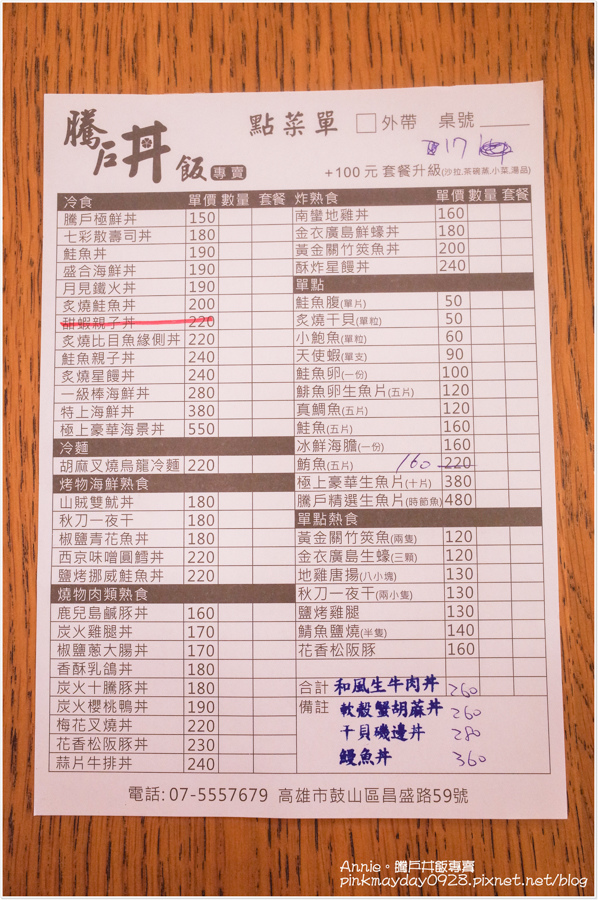 騰戶丼飯 專賣
點菜單 外帶 桌號
17
+100 元 套餐升級(沙拉,茶碗蒸,小菜,湯品)
冷食 單價 數量 套餐
騰戶極鮮丼 150
七彩散壽司丼 180
鮭魚丼 190
盛合海鮮丼 190
月見鐵火丼 190
炙燒鮭魚丼 200
甜蝦親子丼 220
炙燒比目魚緣側丼 220
鮭魚親子丼 240
炙燒星饅丼 240
一級棒海鮮丼 280
特上海鮮丼 380
極上豪華海景丼 550
冷麵
胡麻叉燒烏龍冷麵 220
烤物海鮮熟食
山賊雙魷丼 180
秋刀一夜干 180
椒鹽青花魚丼 180
西京味噌圓鱈丼 220
鹽烤挪威鮭魚丼 220
燒物肉類熟食
鹿兒島鹹豚丼 160
炭火雞腿丼 170
椒鹽蔥大腸丼 170
香酥乳鴿丼 180
炭火十騰豚丼 180
炭火櫻桃鴨丼 190
梅花叉燒丼 220
花香松阪豚丼 230
蒜片牛排丼 240
炸熟食 單價 數量 套餐
南蠻地雞丼 160
金衣廣島鮮蠔丼 180
黃金關竹筴魚丼 200
酥炸星饅丼 240
單點
鮭魚腹(單片) 50
炙燒干貝(單粒) 50
小鮑魚(單粒) 60
天使蝦(單支) 90
鮭魚卵(一份) 100
鯡魚卵生魚片(五片) 120
真鯛魚(五片) 120
鮭魚(五片) 160
冰鮮海膽(一份) 160
鮪魚(五片) 160 220
極上豪華生魚片(十片) 380
騰戶精選生魚片(時節魚) 480
單點熱食
黃金關竹筴魚(兩隻) 120
金衣廣島生蠔(三顆) 120
地雞唐揚(八小塊) 130
秋刀一夜干(兩小隻) 130
鹽烤雞腿 130
鯖魚鹽燒(半隻) 140
花香松阪豚 160
合計
備註
和風生牛肉丼 260
軟殼蟹胡蔴丼 260
干貝磯邊丼 280
鰻魚丼 360
電話: 07-5557679 高雄市鼓山區昌盛路59號
Annie。騰戶丼飯專賣
pinkmayday0928.pixnet.net/blog